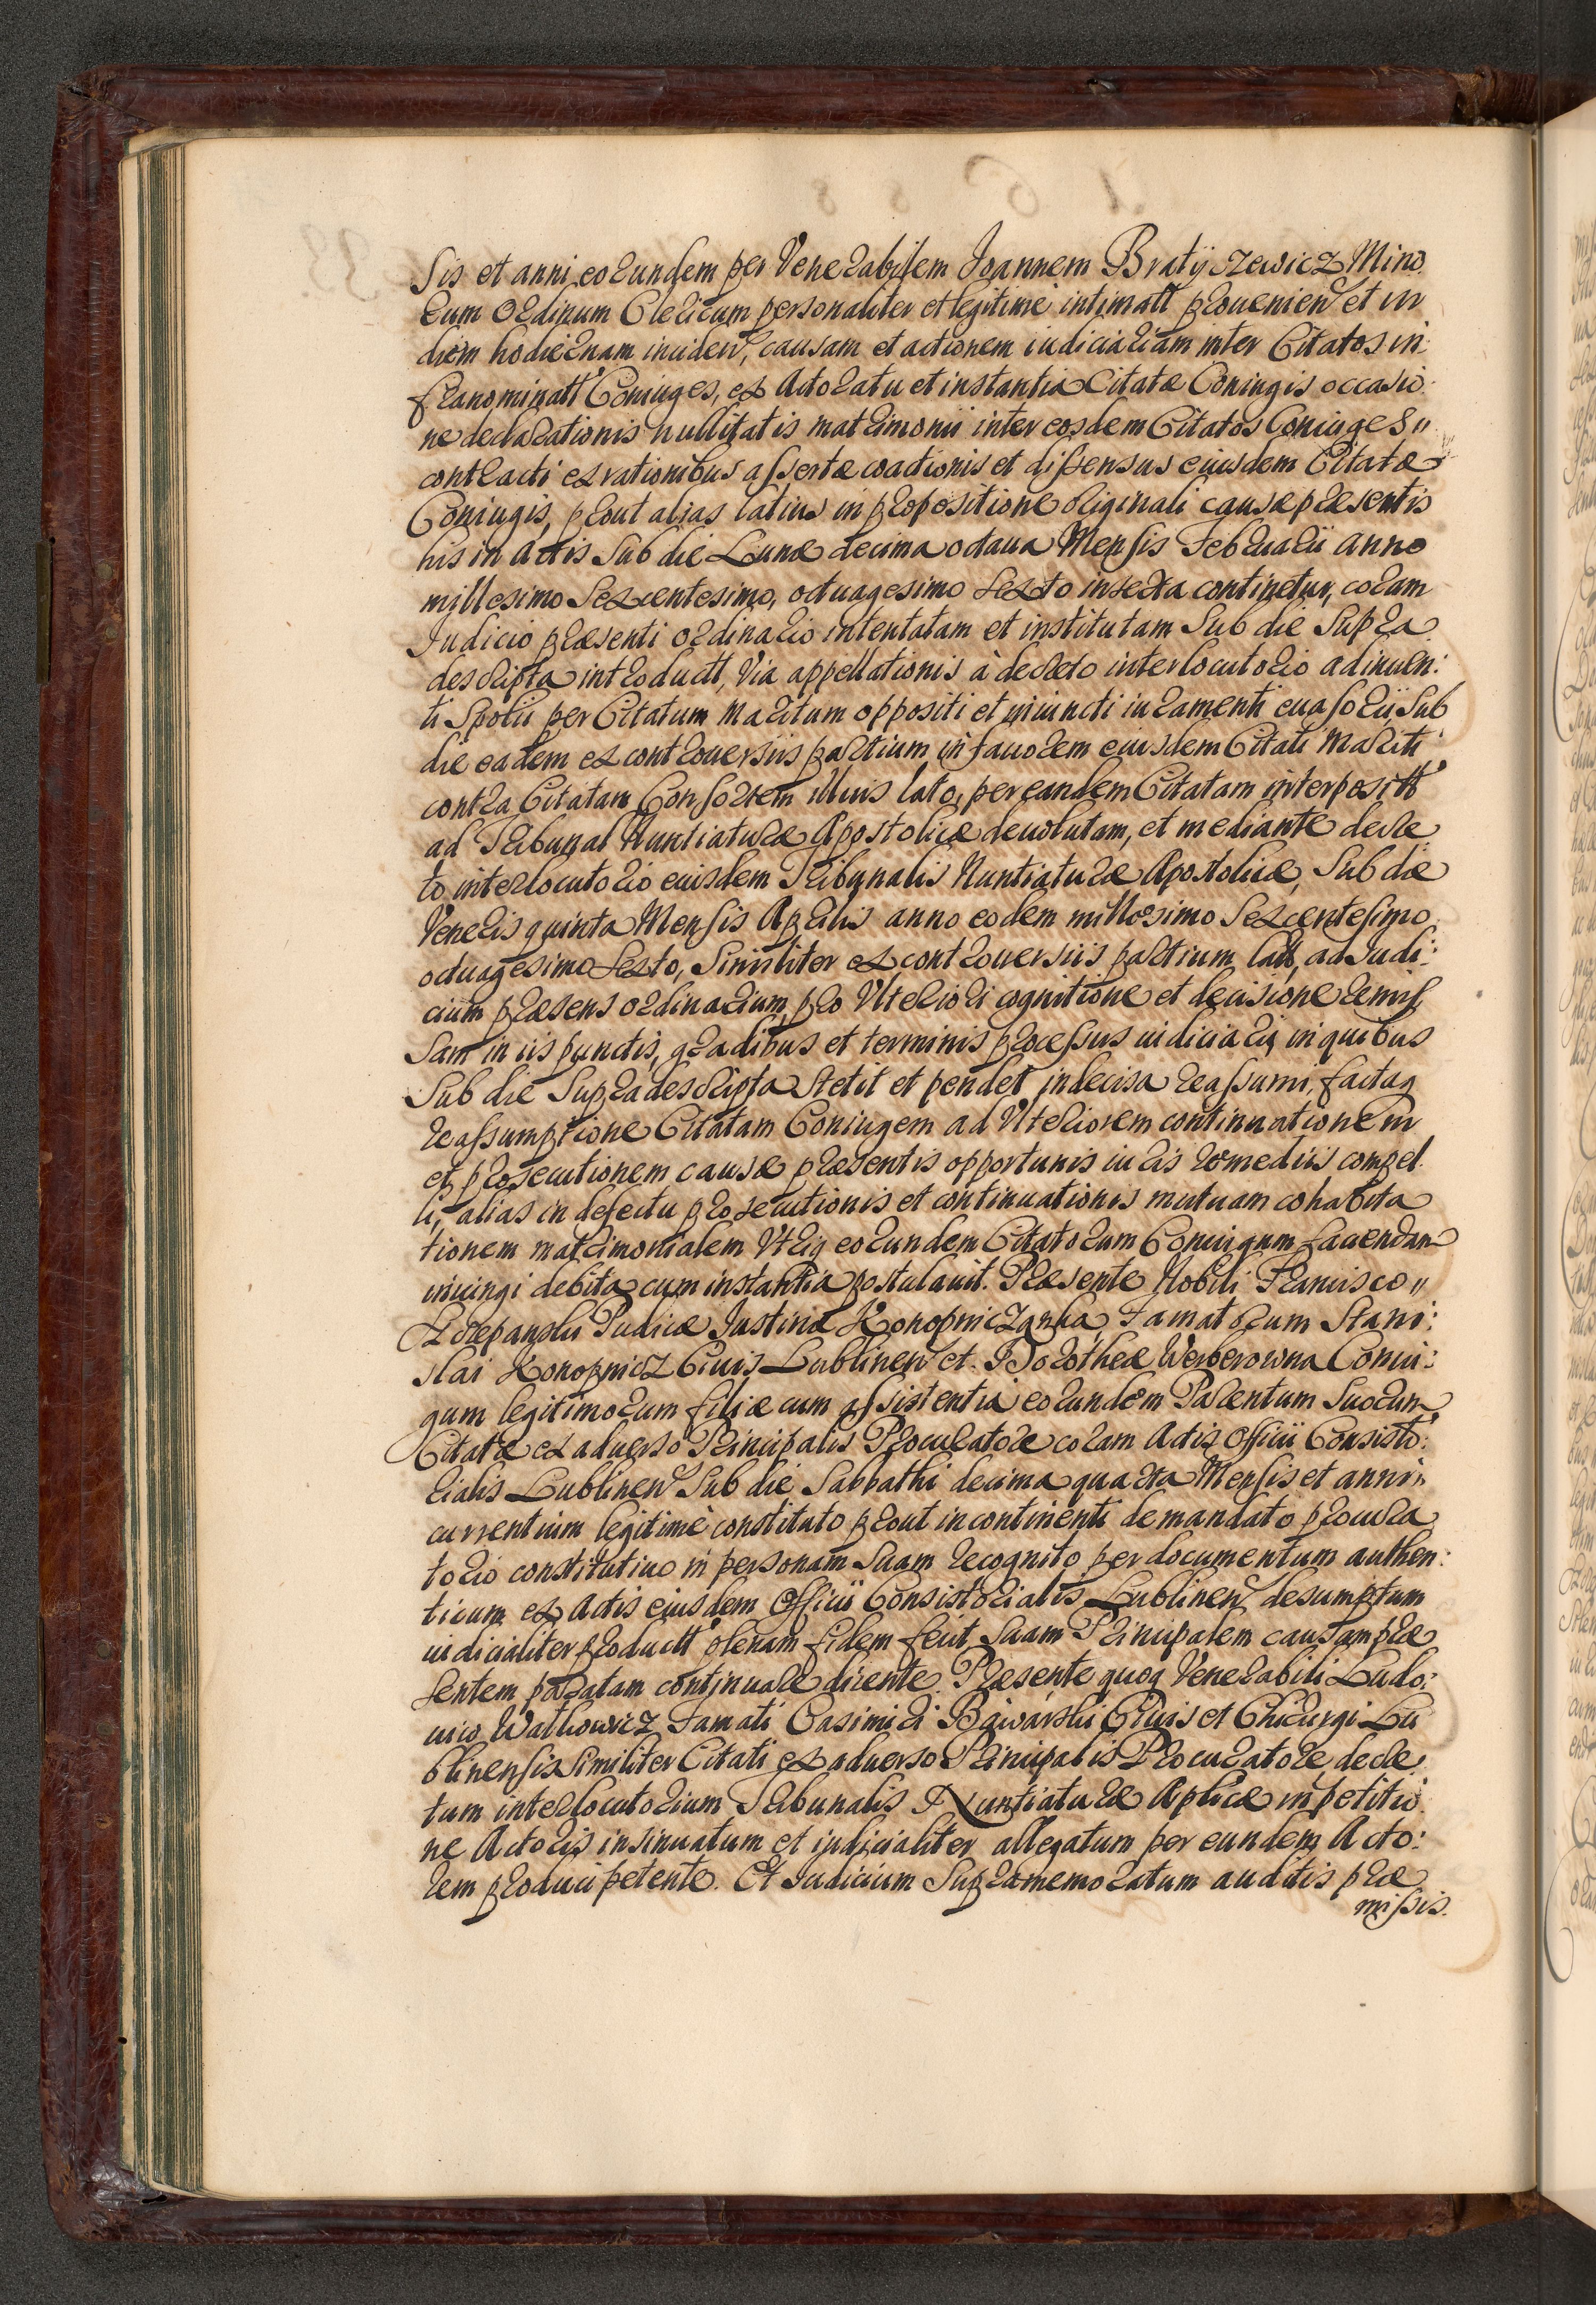 sis et anni eorundem per Venerabilem Joannem Bratyszewicz Mino
rum Ordinum Clericum personaliter et legitimè intimatt prouenien et in
diem hodiernam inciden, causam et actionem iudiciariam inter Citatos in:
franominatt Coniuges, ex Actoratu et instantia Citatæ Coniugis occasio:
ne declarationis nullitatis matrimonii inter eosdem Citatos Coniuges
contracti ex rationibus assertæ coactionis et dissensus eiusdem Citatæ
Coniugis, prout alias latius in propositione originali causæ præsentis
his in Actis sub die Lunæ decima octaua Mensis Februarii anno
millesimo sexcentesimo, octuagesimo sexto inserta continetur, coram
Judicio præsenti ordinario intentatam et institutam sub die supra
descripta introductt, via appellationis à decreto interlocutorio adinuen:
ti Spolii per Citatum Maritum oppositi et iniuncti iuramenti euasorii sub
die eadem ex controuersiis partium in fauorem eiusdem Citati Mariti
contra Citatam Consortem illius lato, per eandem Citatam interpositt
ad Tribunal Nuntiaturæ Apostolicæ deuolutam, et mediante decre
to interlocutorio eiusdem Tribunalis Nuntiaturæ Apostolicæ, sub die
Veneris quinta Mensis Aprilis anno eodem millesimo sexcentesimo
octuagesimo sexto, similiter ex controuersiis partium latt, ad Judi:
cium præsens ordinarium pro vlteriori cognitione et decisione remis
sam in iis punctis, gradibus et terminis processus iudiciarii, in quibus
sub die supradescripta stetit et pendet indecisa reassumi, factaq
reassumptione Citatam Coniugem ad vlteriorem continuationem
et prosecutionem causæ præsentis opportunis iuris remediis compel
li, alias in defectu prosecutionis et continuationis mutuam cohabita
tionem matrimonialem vtriq eorundem Citatorum Coniugum faciendam
iniungi debita cum instantia postulauit. Præsente Nobili Francisco
Szczepanski Pudicæ Justinæ Konopniczanka, Famatorum Stani:
slai Konopnicz Ciuis Lublinen et Dorotheæ Werberowna Coniu:
gum legitimorum filiæ cum assistentia eorundem Parentum suorum
Citatæ ex aduerso Principalis Procuratore coram Actis Officii Consisto:
rialis Lublinen sub die Sabbathi decima quarta Mensis et anni
currentium legitimè constituto prout in continenti de mandato procura
torio constitutiuo in personam suam recognito per documentum authen:
ticum ex Actis eiusdem Officii Consistorialis Lublinen desumptum
iudicialiter productt plenam fidem fecit, suam Principalem causam præ
sentem paratam continuare dicente. Præsente quoq Venerabili Ludo:
uico Walkowicz Famati Casimiri Bawarski Ciuis et Chirurgi Lu
blinensis similiter Citati ex aduerso Principalis Procuratore decre
tum interlocutorium Tribunalis Nuntiaturæ Aplicæ in petitio
ne Actoris insinuatum et iudicialiter allegatum per eundem Acto:
rem produci petente. Et Judicium supramemoratum auditis præ
missis.